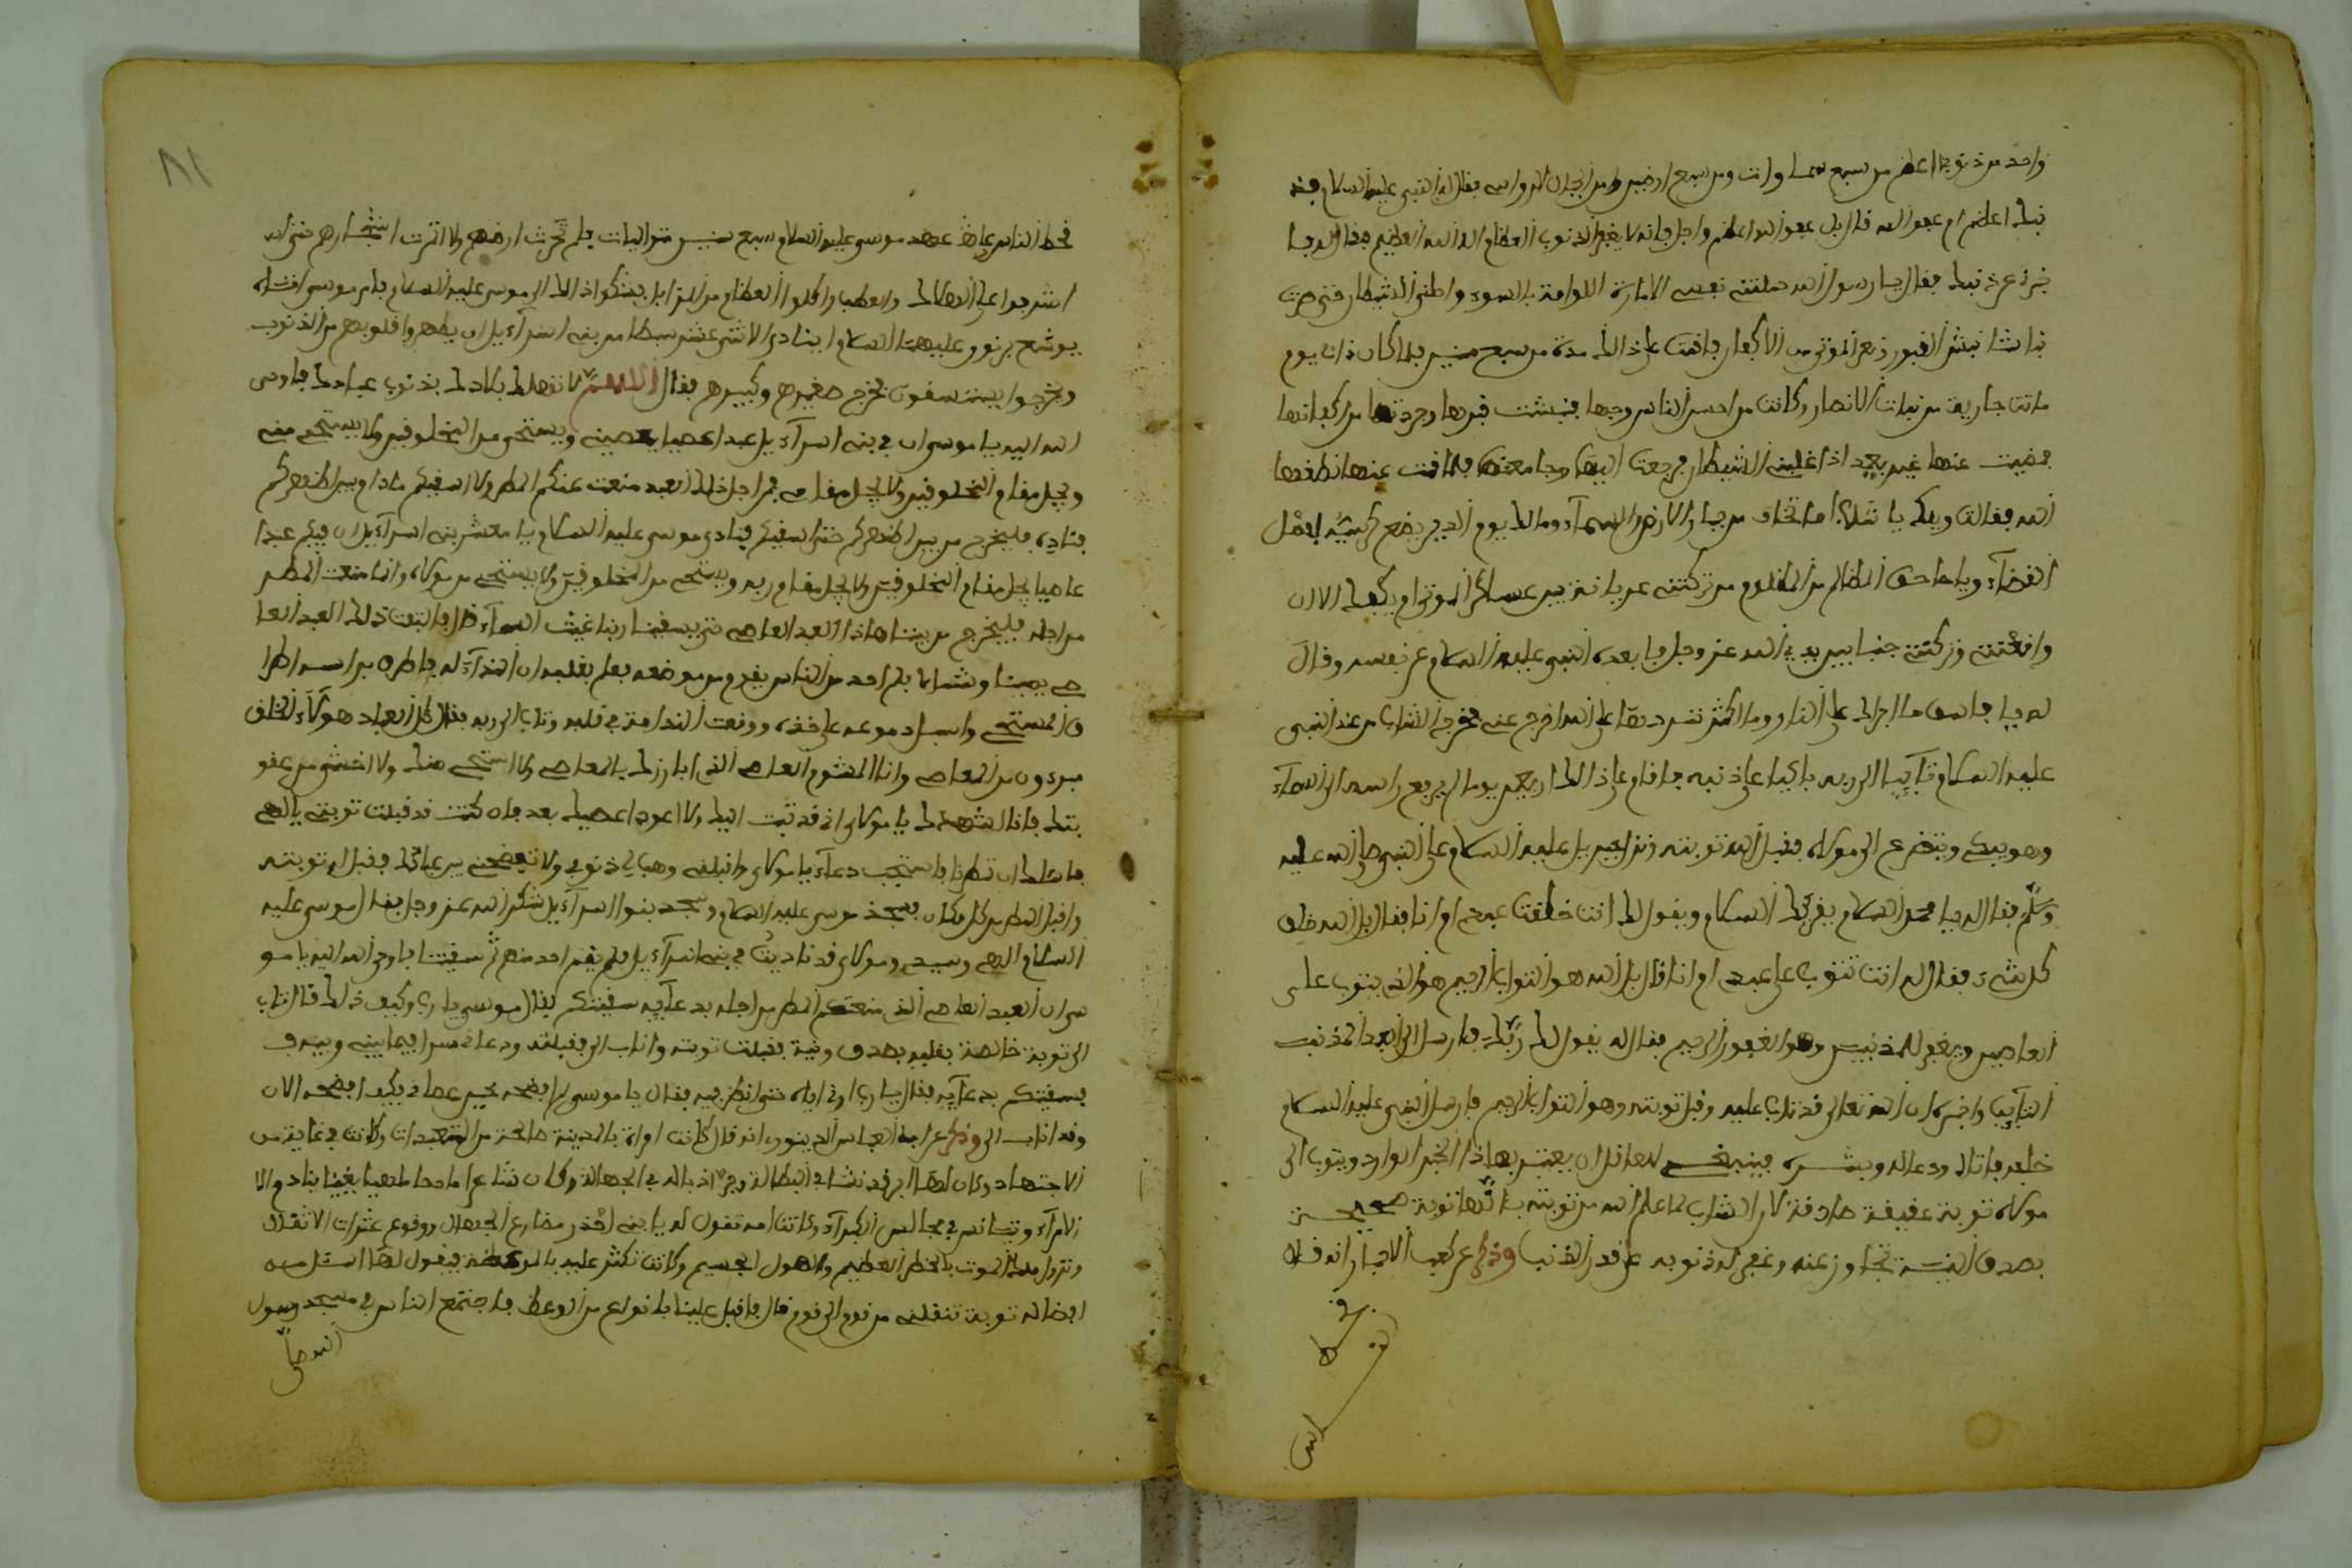 واحد من ذنوبك اعظم من سبع سماوات ومن سبع ارضين ومن الجبال الرواسي فقال له النبي عليه السلام فذ
نبك اعظم ام عفو الله قال بل عفو الله اعظم واجل فانه لا يغفر الذنوب العظام الا الله العظيم فقال له فا
خبرني عن ذنبك فقال يا رسول الله حملتني نفسي الامارة اللوامة بالسوء واضلني الشيطان حتى صرت
نباشا نبش القبور ونزع الموتى من الاكفان فاقمت على ذالك مدة من سبع سنين فلما كان ذات يوم
ماتت جارية من بنات الانصار وكانت من احسن الناس وجها فنبشت قبرها وجردتها من اكفانها
فمضيت عنها غير بعيد اذا غلبني الشيطان فرجعت اليها وجامعتها فلما قمت عنها نطقها
الله فقالت ويلك يا شاب اما تخاف من جبار الارض والسماء ومالك يوم الدين يضع كرسيه لفصل
القضاء وياخذ حق الظالم من المظلوم من تركتني عريانة بين عساكر الموتى ام يكفيك الا ان
وافقتني وتركتني جنبا بين يدي الله عز وجل فابعده النبي عليه السلام عن نفسه وقال
له يا فاسق ما اجراك على النار وما اكثر تمردك على الله اخرج عني فخرج الشاب من عند النبي
عليه السلام تايبا الى ربه باكيا على ذنبه فاقام على ذالك اربعين يوما لم يرفع راسه الى السماء
وهو يبكي ويتضرع الى مولاه فقبل الله توبته ونزل جبريل عليه السلام على النبي صلى الله عليه
وسلم فقال له يا محمد السلام يقريك السلام ويقول لك انت خلقت عبدي ام انا فقال بل الله خلق
كل شيء فقال له انت تتوب على عبدي ام انا قال بل الله هو التواب الرحيم هو الذي يتوب على
العاصين ويغفر للمذنبين وهو الغفور الرحيم فقال له يقول لك ربك فارسل الى العبد المذنب
التايب واخبره ان الله تعالى قد تاب عليه وقبل توبته وهو التواب الرحيم فارسل النبي عليه السلام
خلفه فاتاه ودعا له وبشره فينبغي للعاقل ان يعتبر بهاذا الخبر الوارد ويتوب الى
مولاه توبة حقيقة صادقة لان الشاب لما علم الله من توبته بانها توبة صحيحة
بصدق النية تجاوز عنه وغفر له ذنوبه على قدر الذنب وذكر عن كعب الاحبار انه قال
قحط الناس على عهد موسى عليه السلام سبع سنين متواليات فلم تحرث ارضهم ولا اثمرت اشجارهم حتى
اشرفوا على الهلاك والعطب واكلوا العظام من المزابل فشكوا ذالك الى موسى عليه السلام فامر موسى فتاه
يوشع بن نون عليهما السلام ان ينادي الاثني عشر سبطا من بني اسرائيل ان يطهروا قلوبهم من الذنوب
ويخرجوا يستسقون فخرج صغيرهم وكبيرهم فقال اللهم لا تهلك بلادك بذنوب عبادك فاوحى
الله اليه يا موسى ان في بني اسرائيل عبدا عصيا يعصيني ويستحي من المخلوقين ولا يستحي مني
ويجل مقام المخلوقين ولا يجل مقامي فمن اجل ذالك العبد منعت عنكم المطر ولا اسقيكم ما دام بين اظهركم
فناده فليخرج من بين اظهركم حتى اسقيكم فنادى موسى عليه السلام يا معشر بني اسرائيل ان فيكم عبدا
عاصيا يجل مقام المخلوقين ولا يجل مقام ربه ويستحي من المخلوقين ولا يستحي من مولاه وانا منعت المطر
من اجله فليخرج من بيننا هاذا العبد العاصي حتى يسقينا ربنا غيث السماء قال فالتفت ذلك العبد العا
صي يمينا وشمالا فلم احد من الناس يقوم من موضعه فعلم بقلبه ان النداء له فاطرق براسه اطرا
ق المستحي واسبل دموعه على خده ووقعت الندامة في قلبه وتاب الى ربه فقال كل العباد هولاء الخلق
مبرءون من المعاصي وانا المشوم العاصي الذي ابارزك بالمعاصي ولا استحي منك ولا اخشى من عقو
بتك فانا اشهدك يا مولاي اني قد تبت اليك ولا اعود اعصيك بعد فان كنت قد قبلت توبتي يا الهي
فاسلك ان تمطرنا فاستجب دعائي يا مولاي واقبلني وهب لي ذنوبي ولا تفضحني بين عبادك فقبل الله توبته
واقبل المطر من كل مكان فسجد موسى عليه السلام وسجد بنوا اسرائيل شكرا لله عز وجل فقال موسى عليه
السلام الهي وسيدي ومولاي قد ناديت في بني اسرائيل فلم يقم احد منهم ثم سقيتنا فاوحى الله اليه يا مو
سى ان العبد العاصي الذي منعتكم المطر من اجله بدعائه سقيتكم فقال موسى يا رب وكيف ذلك قال تاب
الى توبة خالصة بقلبه بصدق ونية فقبلت توبته واناب الى فقبلته ودعاني سرا فيما بيني وبينه ف
بسقيتكم بدعائه فقال يا رب ارني اياه حتى انظر فيه فقال يا موسى لم افضحه حين عصاني فكيف افضحه الان
وقد اناب الى وذكر عن ابي العباس الدينوري انه قال كانت امراة بالمدينة صالحة من المتعبدات وكانت في غاية من
الاجتهاد وكان لها ابن قد نشا في البطالة وجر اذياله في الجهالة وكان شابا
الامراء ويجالس في مجالس الكبراء وكانت امه تقول له يا بني احذر مصارع الجهال ووقوع عثرات الاثقال
ونزول ملك الموت بالخطر العظيم والهول الجسيم وكانت تكثر عليه بالموعظة فيقول لها
توبة تنقلني من نوم الى نوم قال فاقبل علينا بانواع من الوعظ فاجتمع الناس في مسجد رسول
الله صلى